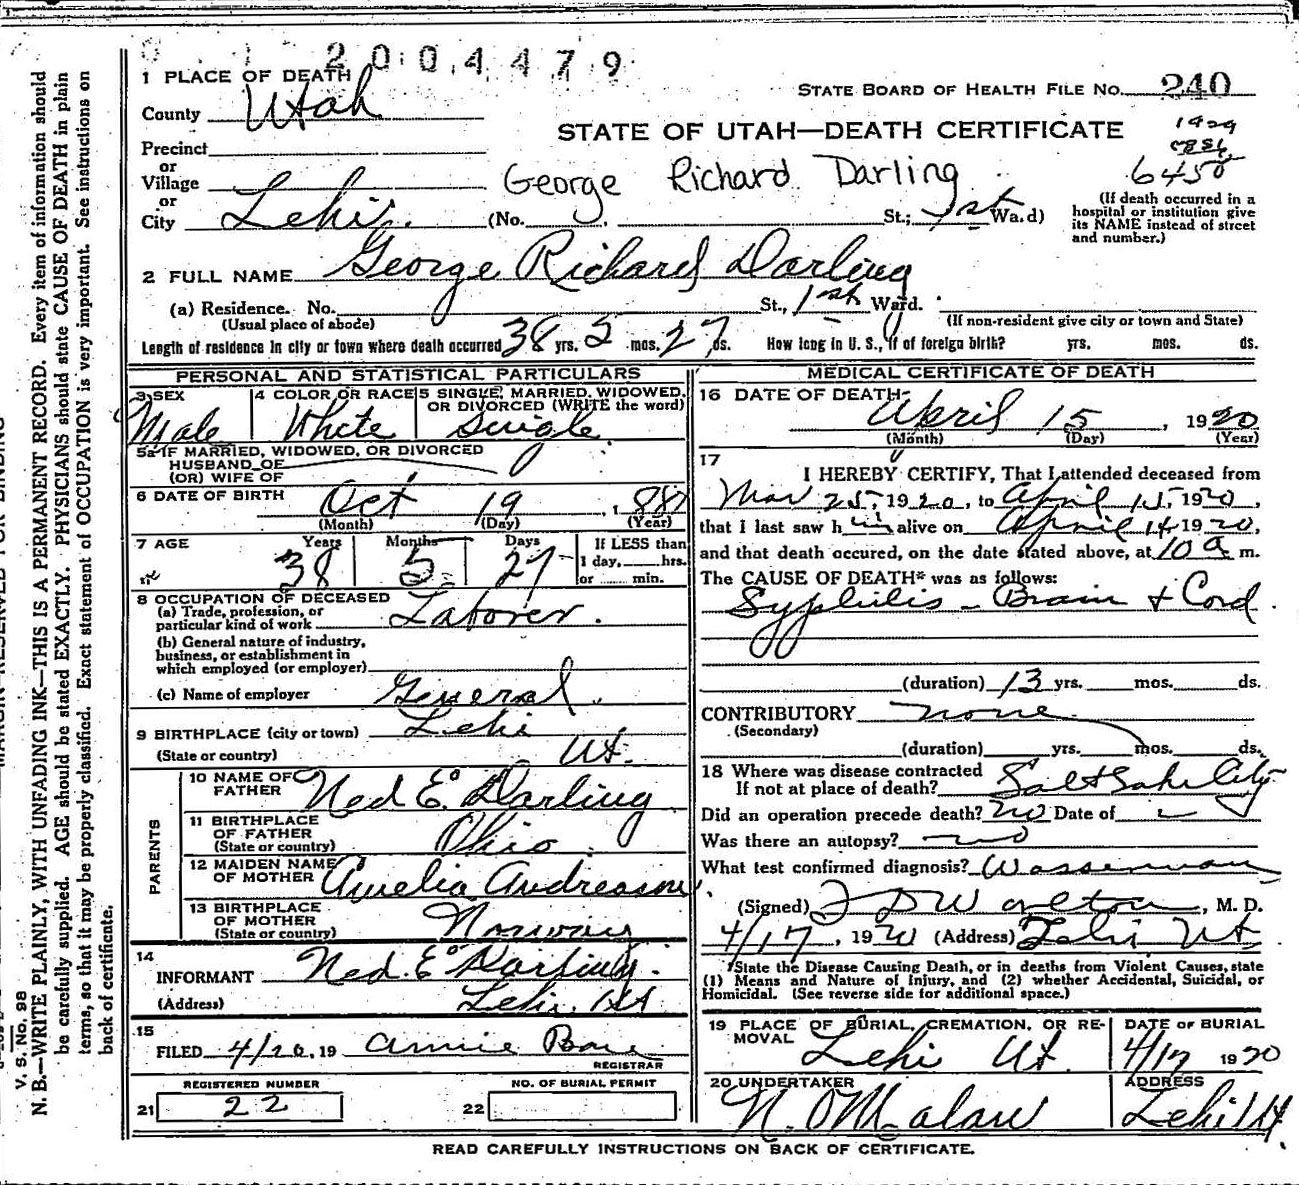 2004479
1 PLACE OF DEATH
STATE BOARD OF HEALTH FILE NO. 240
County Utah
STATE OF UTAH—DEATH CERTIFICATE
1929
Precinct
or
Village
or
City Lehi.
6450
George Richard Darling
(No. St.; 1st Wa.d)
(If death occurred in a
hospital or institution give
its NAME instead of street
and number.)
2 FULL NAME George Richard Darling
(a) Residence. No. St., 1st Ward.
(Usual place of abode)
(If non-resident give city or town and State)
Length of residence in city or town where death occurred 38 yrs. 5 mos. 27 ds. How long in U. S., if of foreign birth? yrs. mos. ds.
PERSONAL AND STATISTICAL PARTICULARS
3 SEX
Male
4 COLOR OR RACE
White
5 SINGLE, MARRIED, WIDOWED,
OR DIVORCED (WRITE the word)
Single
5a IF MARRIED, WIDOWED, OR DIVORCED
HUSBAND OF
(OR) WIFE OF
6 DATE OF BIRTH Oct 19, 188
(Month) (Day) (Year)
7 AGE Years Months Days
38 5 27
If LESS than
1 day, hrs.
or min.
8 OCCUPATION OF DECEASED
(a) Trade, profession, or
particular kind of work Laborer.
(b) General nature of industry,
business, or establishment in
which employed (or employer)
(c) Name of employer General.
9 BIRTHPLACE (city or town) Lehi
(State or country) Ut.
PARENTS
10 NAME OF
FATHER Ned E. Darling
11 BIRTHPLACE
OF FATHER
(State or country) Ohio.
12 MAIDEN NAME
OF MOTHER Amelia Andreason
13 BIRTHPLACE
OF MOTHER
(State or country) Norway
14
INFORMANT Ned E. Darling.
(Address) Lehi, Ut
15
FILED 4/20, 19 Annie
REGISTRAR
REGISTERED NUMBER
21 22
NO. OF BURIAL PERMIT
22
MEDICAL CERTIFICATE OF DEATH
16 DATE OF DEATH
April 15, 1920
(Month) (Day) (Year)
17
I HEREBY CERTIFY, That I attended deceased from
Mar 25, 1920, to April 15, 1920,
that I last saw him alive on April 14 1920,
and that death occured, on the date stated above, at 10 a m.
The CAUSE OF DEATH* was as follows:
Syphilis – Brain & Cord.
(duration) 13 yrs. mos. ds.
CONTRIBUTORY none
(Secondary)
(duration) yrs. mos. ds.
18 Where was disease contracted
If not at place of death? Salt Lake City
Did an operation precede death? no Date of
Was there an autopsy? no
What test confirmed diagnosis? Wasserman
(Signed) M. D.
4/17, 1920 (Address) Lehi Ut
*State the Disease Causing Death, or in deaths from Violent Causes, state
(1) Means and Nature of Injury, and (2) whether Accidental, Suicidal, or
Homicidal. (See reverse side for additional space.)
19 PLACE OF BURIAL, CREMATION, OR RE-
MOVAL
Lehi Ut
DATE OF BURIAL
4/17 1920
20 UNDERTAKER
ADDRESS
Lehi Ut
READ CAREFULLY INSTRUCTIONS ON BACK OF CERTIFICATE.
MARGIN RESERVED FOR BINDING
V. S. No. 98
N. B.—WRITE PLAINLY, WITH UNFADING INK—THIS IS A PERMANENT RECORD. Every item of information should
be carefully supplied. AGE should be stated EXACTLY. PHYSICIANS should state CAUSE OF DEATH in plain
terms, so that it may be properly classified. Exact statement of OCCUPATION is very important. See instructions on
back of certificate.